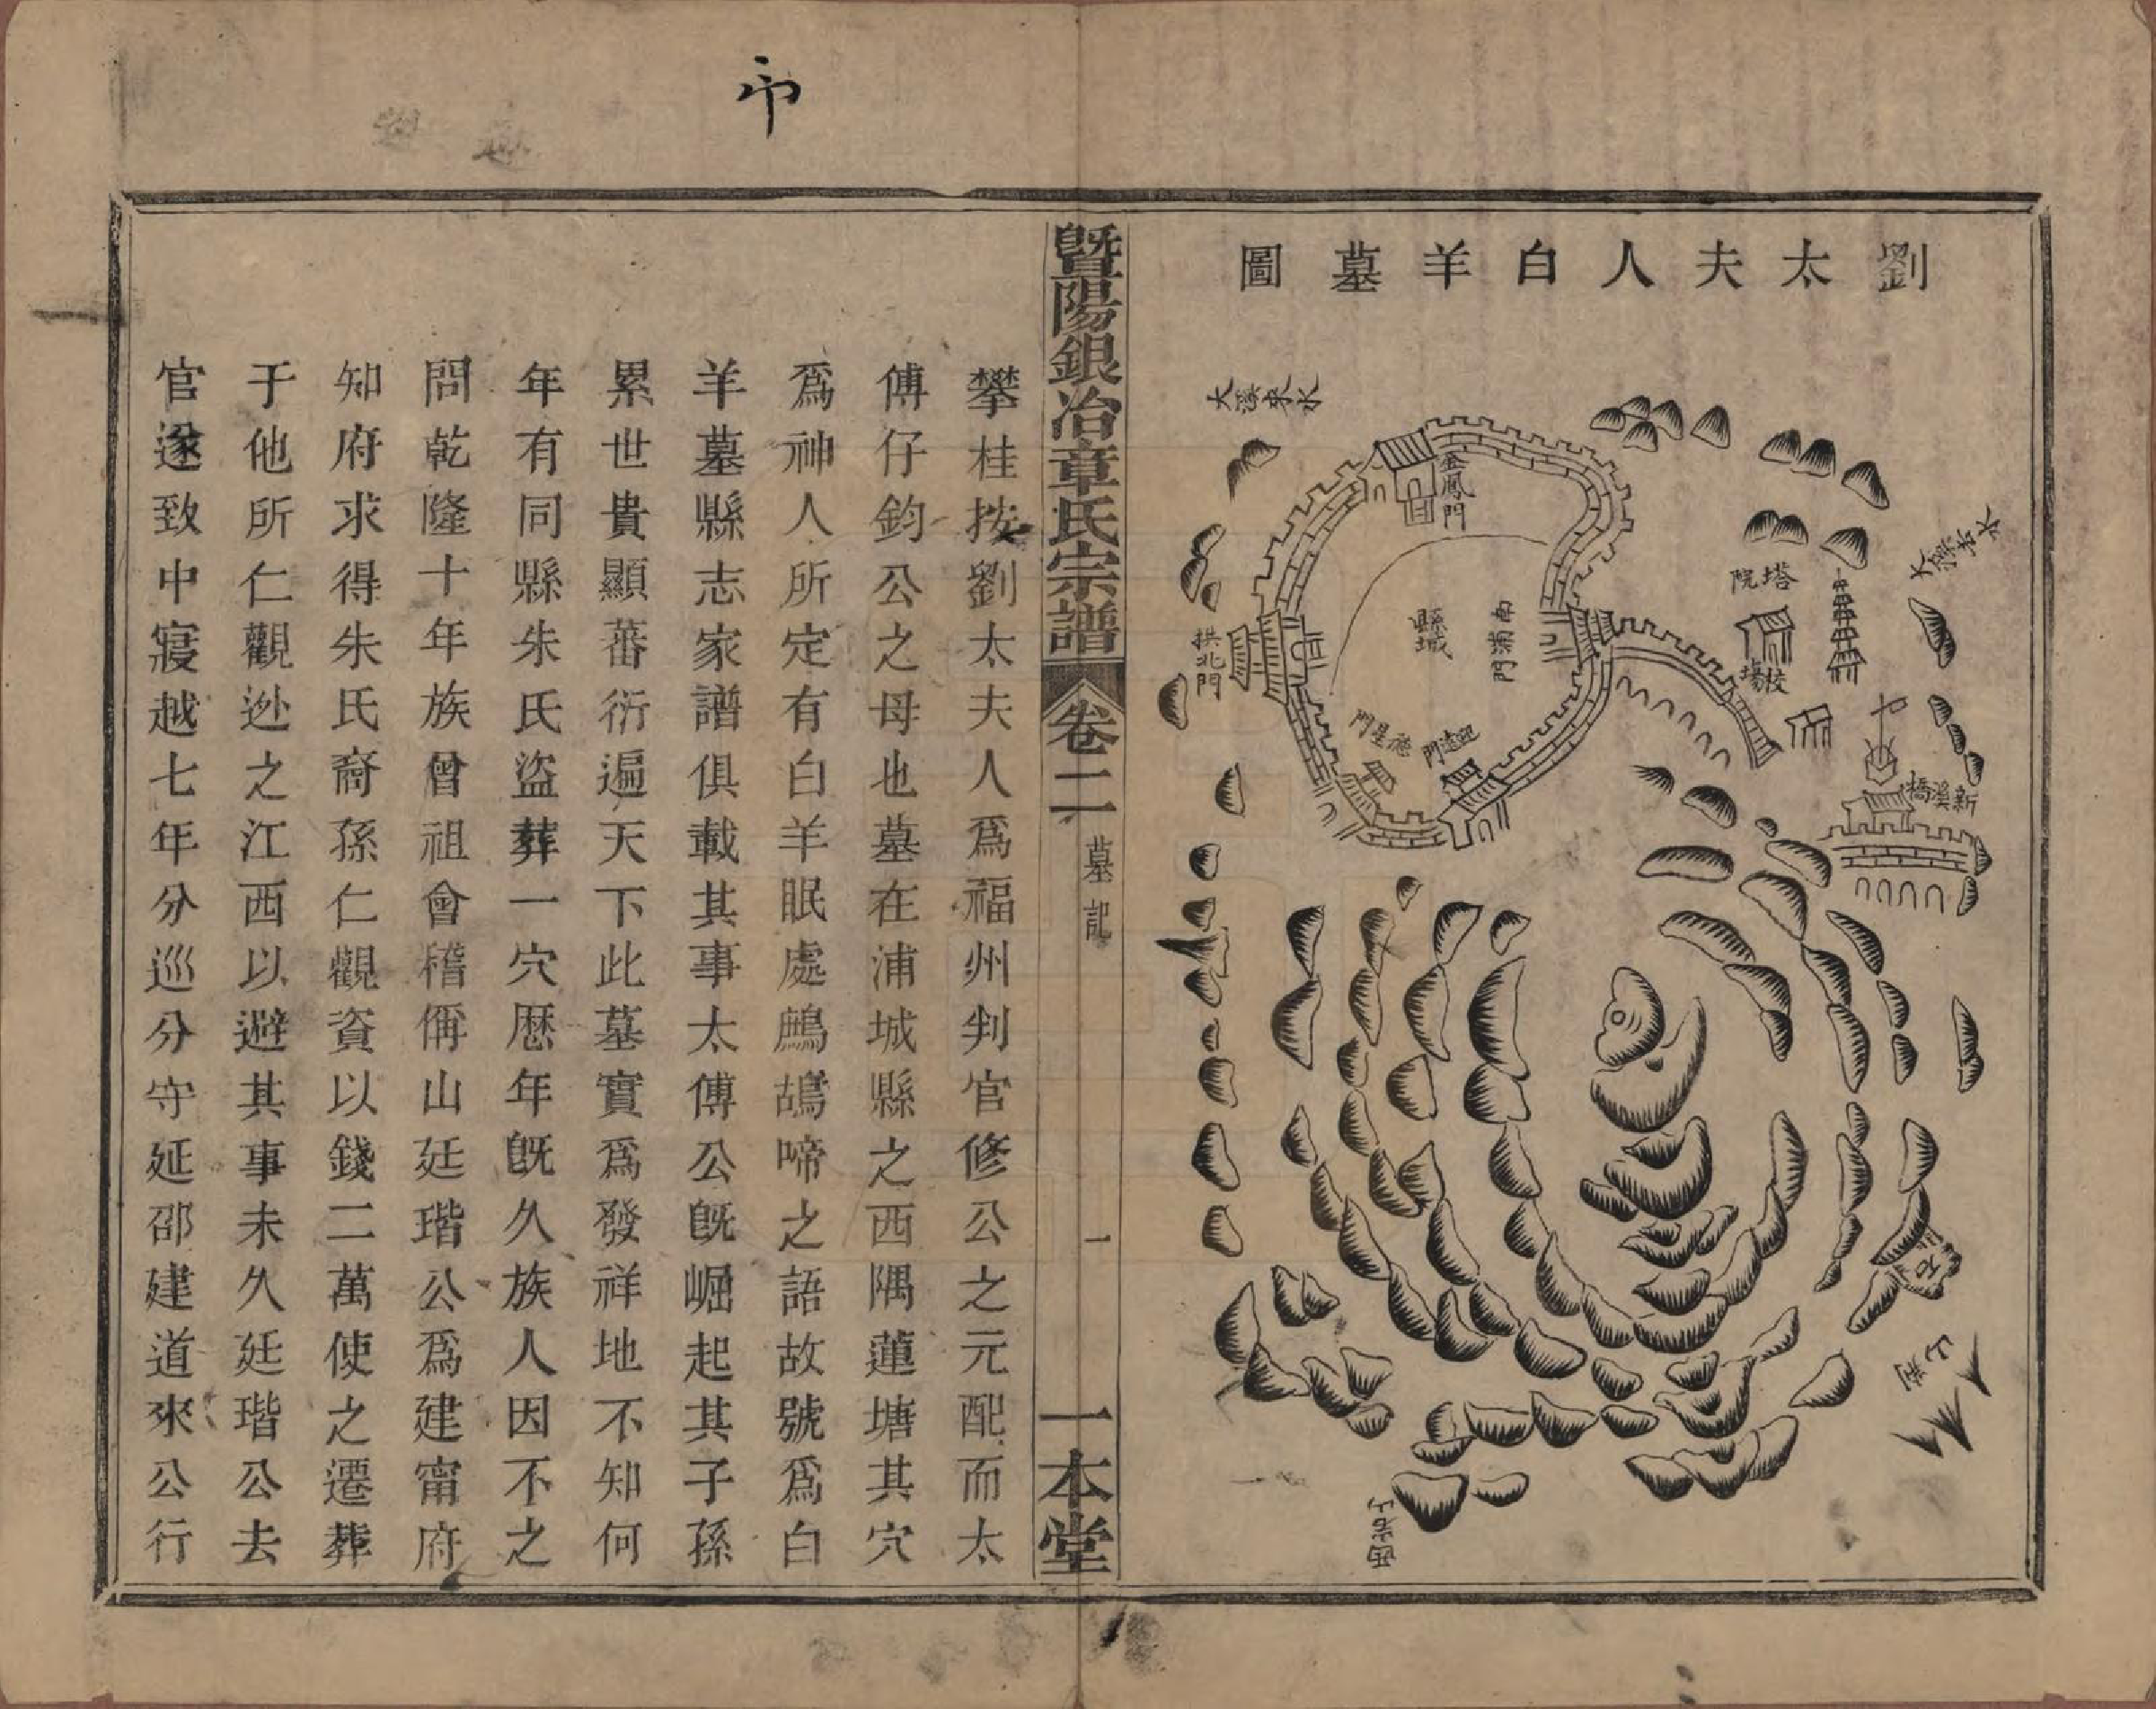 劉太夫人白羊墓圖
大溪來水
金鳳門
大溪去水
塔院
校場
縣城
南浦門
拱北門
德星門
迎遠門
新溪橋
西岩山
暨陽銀冶章氏宗譜 卷二 墓記 一 一本堂
攀桂按劉太夫人為福州判官修公之元配而太
傅仔鈞公之母也墓在浦城縣之西隅蓮塘其穴
為神人所定有白羊眠處鷓鴣啼之語故號為白
羊墓縣志家譜俱載其事太傅公旣崛起其子孫
累世貴顯蕃衍遍天下此墓實為發祥地不知何
年有同縣朱氏盜葬一穴歴年旣久族人因不之
問乾隆十年族曾祖會稽偁山廷瑎公為建甯府
知府求得朱氏裔孫仁觀資以錢二萬使之遷葬
于他所仁觀逊之江西以避其事未久廷瑎公去
官遂致中寢越七年分巡分守延邵建道來公行